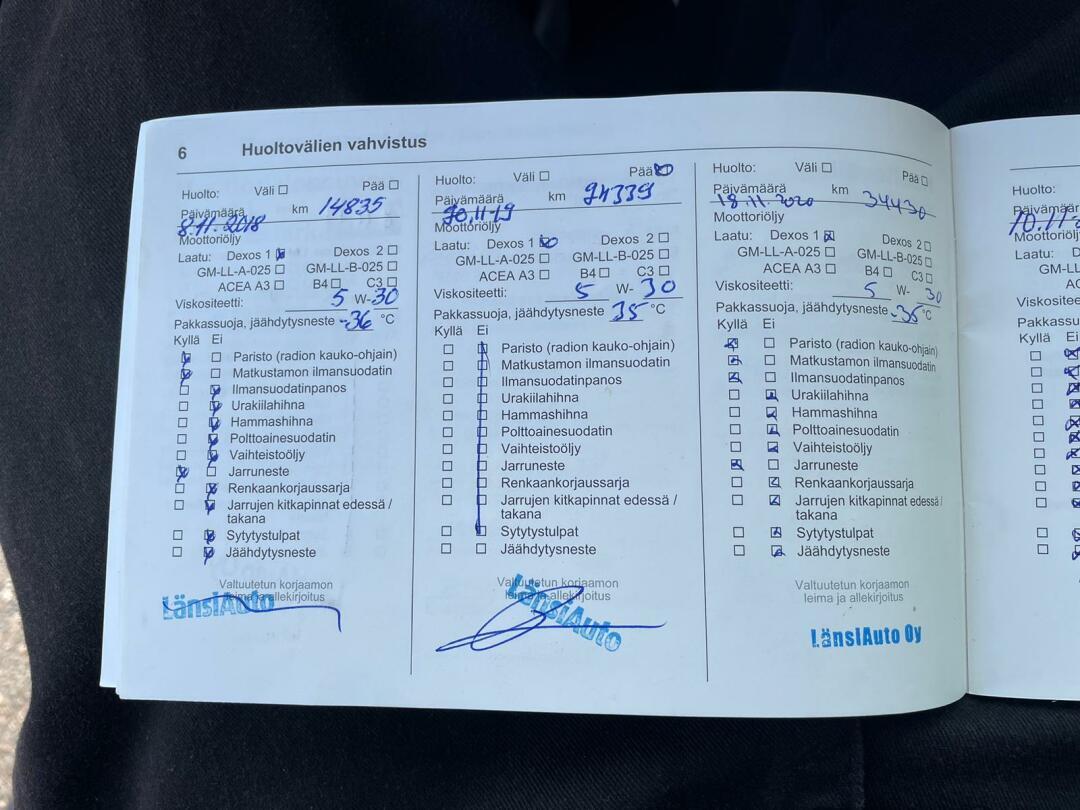 6 Huoltovälien vahvistus
Huolto: Väli Pää
Päivämäärä km 14835
8.11.2018
Moottoriöljy
Laatu: Dexos 1 Dexos 2
GM-LL-A-025 GM-LL-B-025
ACEA A3 B4 C3
Viskositeetti: 5 W-30
Pakkassuoja, jäähdytysneste -36 °C
Kyllä Ei
Paristo (radion kauko-ohjain)
Matkustamon ilmansuodatin
Ilmansuodatinpanos
Urakiilahihna
Hammashihna
Polttoainesuodatin
Vaihteistoöljy
Jarruneste
Renkaankorjaussarja
Jarrujen kitkapinnat edessä /
takana
Sytytystulpat
Jäähdytysneste
Valtuutetun korjaamon
leima ja allekirjoitus
LänsiAuto
Huolto: Väli Pää
Päivämäärä km
Moottoriöljy
Laatu: Dexos 1 Dexos 2
GM-LL-A-025 GM-LL-B-025
ACEA A3 B4 C3
Viskositeetti: 5 W-30
Pakkassuoja, jäähdytysneste 35 °C
Kyllä Ei
Paristo (radion kauko-ohjain)
Matkustamon ilmansuodatin
Ilmansuodatinpanos
Urakiilahihna
Hammashihna
Polttoainesuodatin
Vaihteistoöljy
Jarruneste
Renkaankorjaussarja
Jarrujen kitkapinnat edessä /
takana
Sytytystulpat
Jäähdytysneste
Valtuutetun korjaamon
leima ja allekirjoitus
LänsiAuto
Huolto: Väli Pää
Päivämäärä km 34430
18.11.2020
Moottoriöljy
Laatu: Dexos 1 Dexos 2
GM-LL-A-025 GM-LL-B-025
ACEA A3 B4 C3
Viskositeetti: 5 W-30
Pakkassuoja, jäähdytysneste -35 °C
Kyllä Ei
Paristo (radion kauko-ohjain)
Matkustamon ilmansuodatin
Ilmansuodatinpanos
Urakiilahihna
Hammashihna
Polttoainesuodatin
Vaihteistoöljy
Jarruneste
Renkaankorjaussarja
Jarrujen kitkapinnat edessä /
takana
Sytytystulpat
Jäähdytysneste
Valtuutetun korjaamon
leima ja allekirjoitus
LänsiAuto Oy
Huolto:
Päivämäär
10.11
Moottoriöljy
Laatu: D
GM-LL
AC
Viskositee
Pakkassu
Kyllä Ei